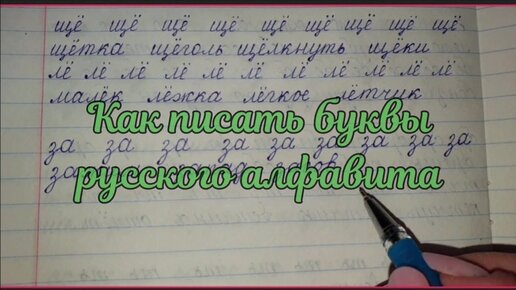 щё щё щё щё щё щё щё щё щё
щётка щёголь щёлкнуть щёки
лё лё лё лё лё лё лё лё лё лё лё
малёк лёжка лёгкое лётчик
Как писать буквы
за за за за за за за за за
за
русского алфавита